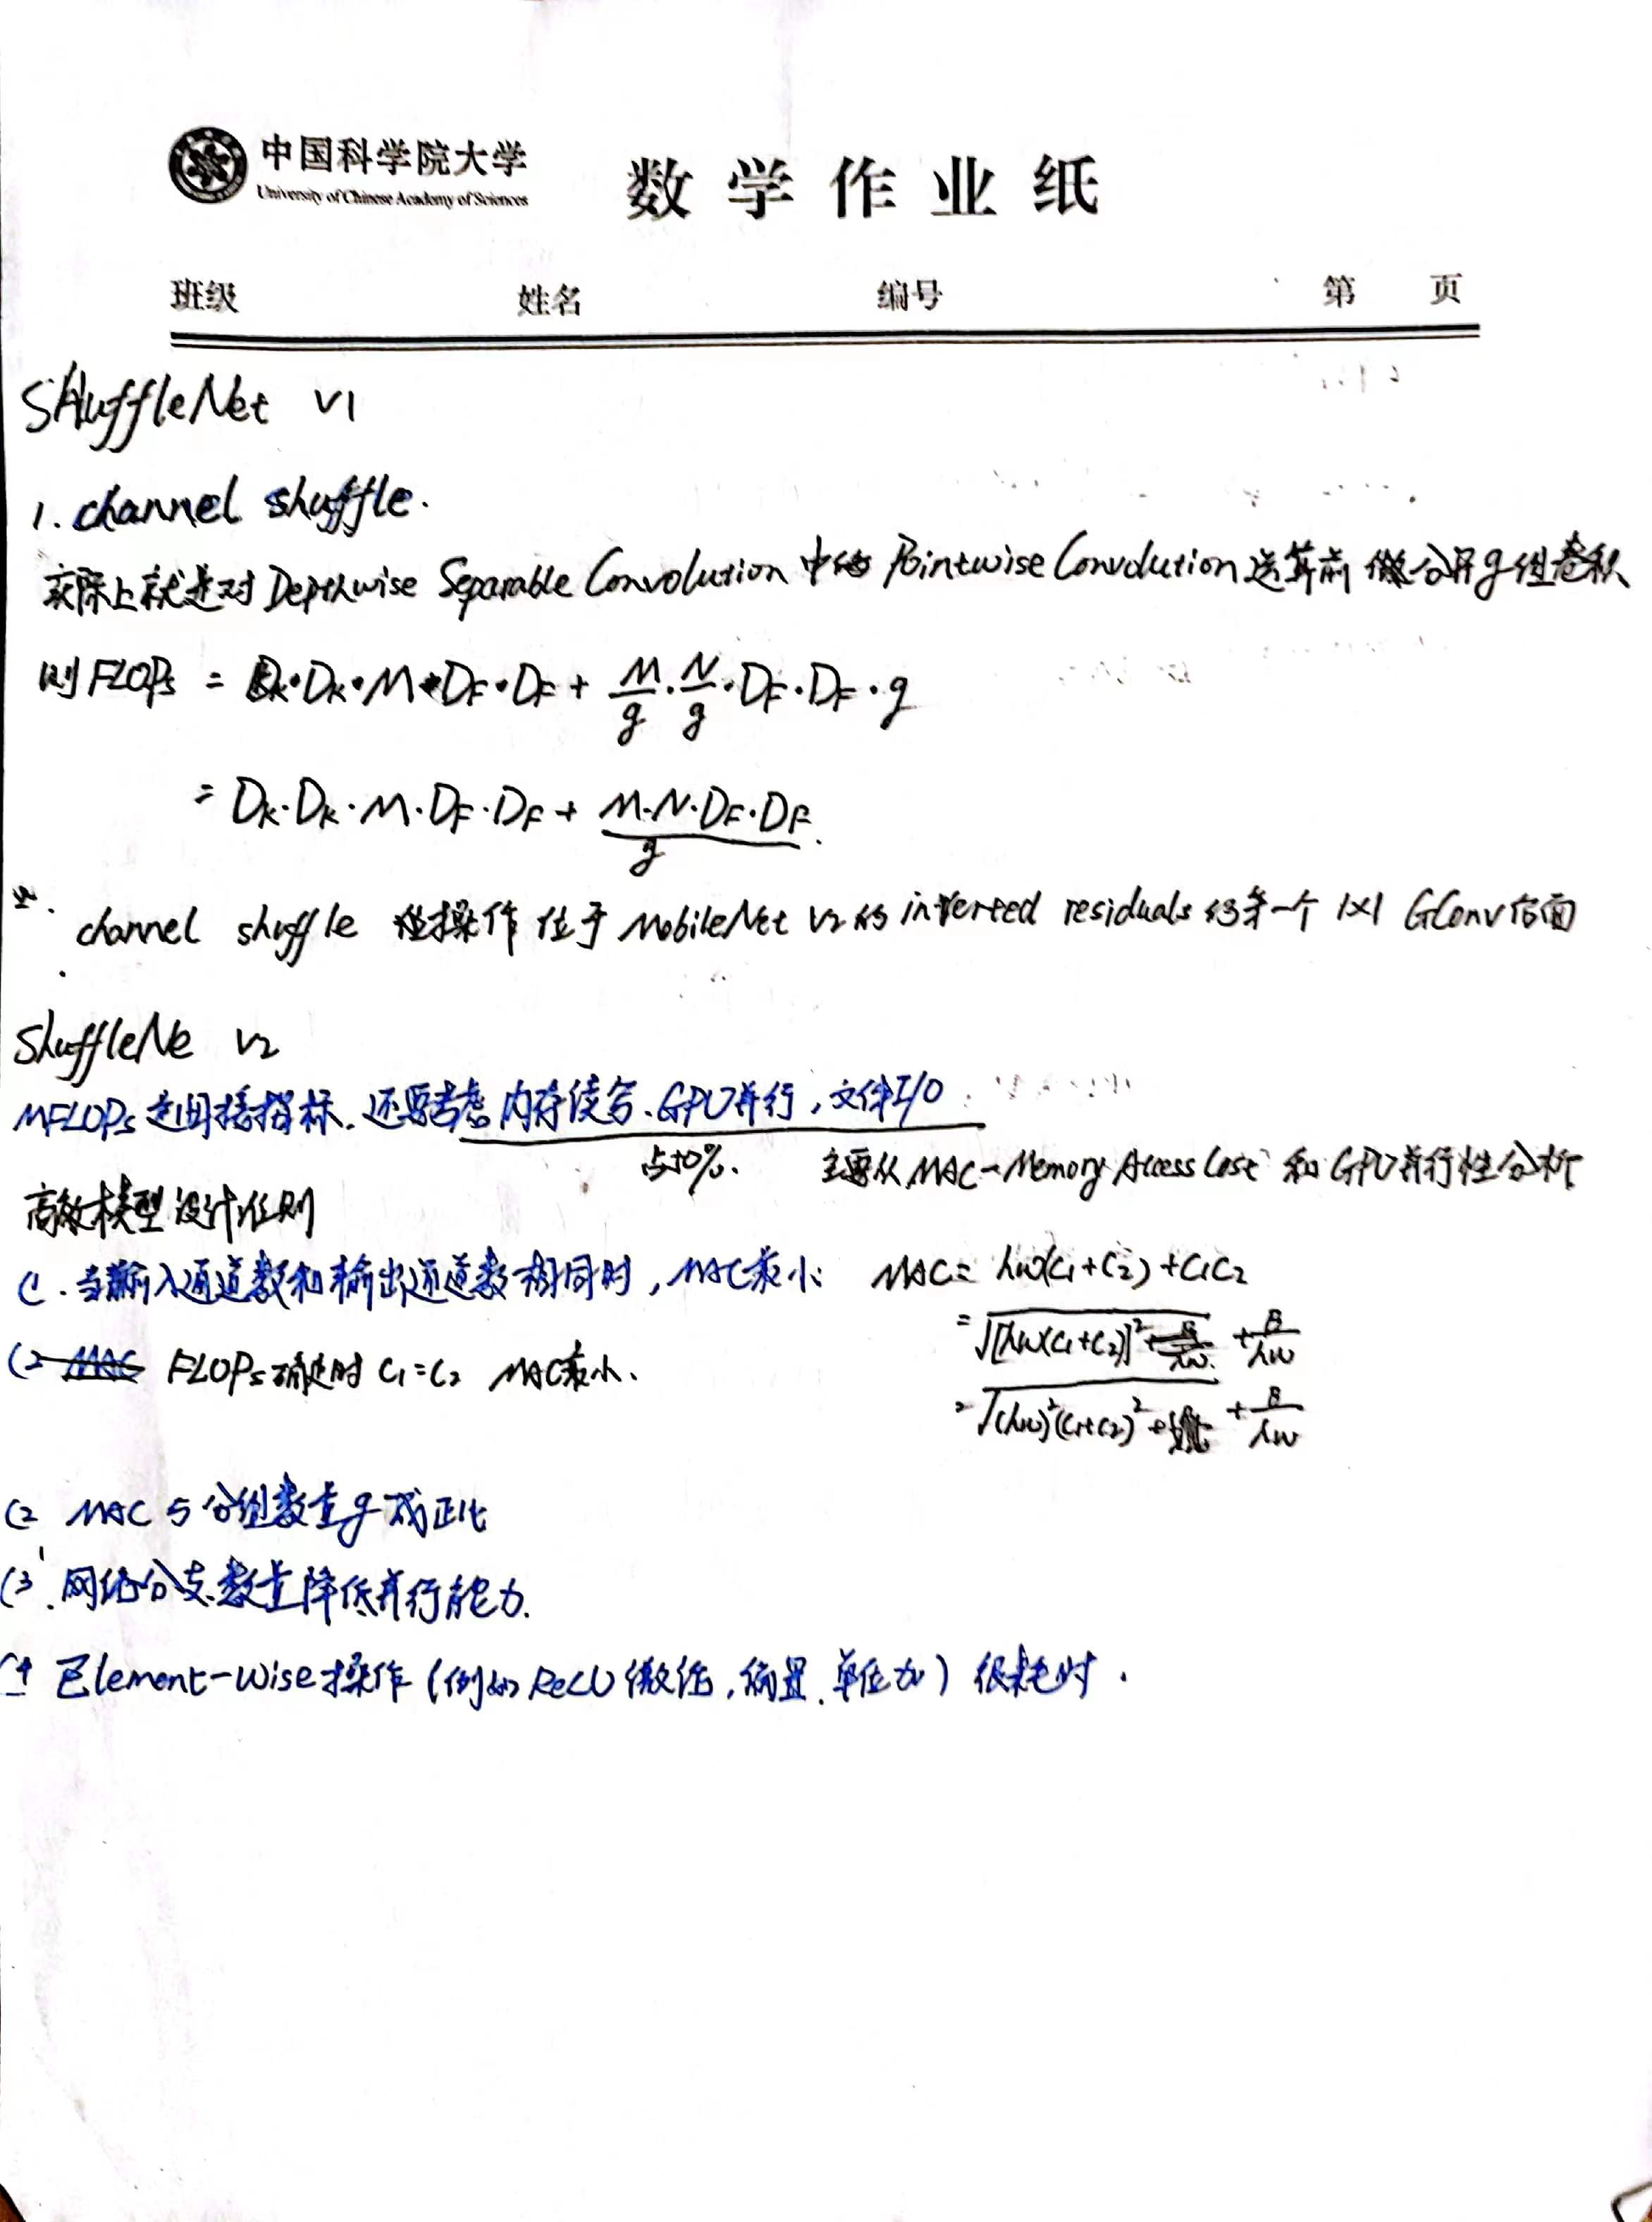 中国科学院大学
University of Chinese Academy of Sciences
数学作业纸
班级 姓名 编号 第 页
SHuffleNet v1
1. channel shuffle.
实际上就是对 Depthwise Separable Convolution 中的 Pointwise Convolution 运算前 做分异g组卷积
则 FLOPs = Dk·Dk·M·DF·DF + M/g · N/g · DF·DF·g
= Dk·Dk·M·DF·DF + M·N·DF·DF / g.
channel shuffle 操作位于 MobileNet v2的 inverted residuals 的第一个 1×1 GConv后面
ShuffleNe v2
MFLOPs 是间接指标. 还要考虑 内存读写、GPU并行, 文件I/O
占50%. 主要从 MAC-Memory Access Cost 和 GPU并行性分析
高效模型设计准则
(1. 当输入通道数和输出通道数相同时, MAC最小: MAC = hw(C1+C2) + C1C2
= √[hw(C1+C2)]² + B/hw
(2 FLOPs确定时 C1=C2 MAC最小.
= √(hw)²(C1+C2)² + B/hw
(2 MAC 与分组数量g成正比
(3. 网络分支数量降低并行能力.
(4 Element-wise操作 (例如 ReLU 激活, 偏置, 单位加) 很耗时.